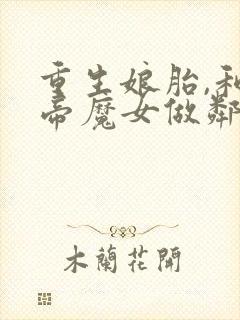 重生娘胎,和
帝魔女做鄰
木蘭花開